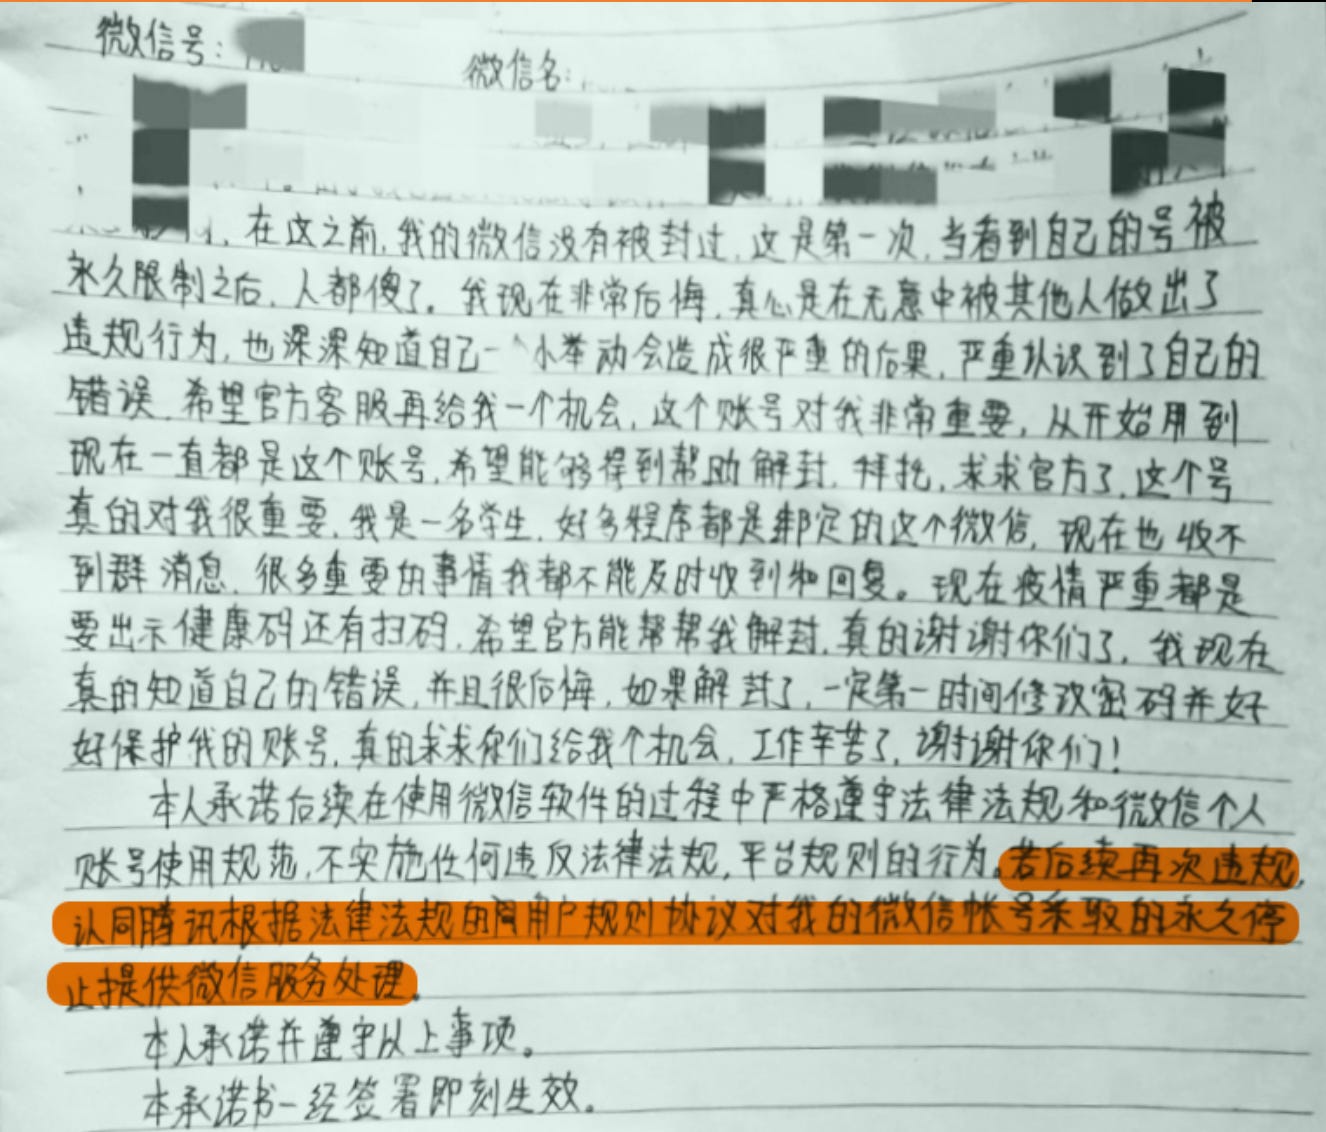 微信号:
微信名:
在这之前,我的微信没有被封过,这是第一次,当看到自己的号被
永久限制之后,人都傻了。我现在非常后悔,真心是在无意中被其他人做出了
违规行为,也深深知道自己一个小举动会造成很严重的后果,严重认识到了自己的
错误,希望官方客服再给我一个机会,这个账号对我非常重要,从开始用到
现在一直都是这个账号,希望能够得到帮助解封,拜托,求求官方了,这个号
真的对我很重要,我是一名学生,好多程序都是绑定的这个微信,现在也收不
到群消息,很多重要的事情我都不能及时收到和回复。现在疫情严重都是
要出示健康码还有扫码,希望官方能帮帮我解封,真的谢谢你们了,我现在
真的知道自己的错误,并且很后悔,如果解封了,一定第一时间修改密码并好
好保护我的账号,真的求求你们给我个机会,工作辛苦了,谢谢你们!
本人承诺后续在使用微信软件的过程中严格遵守法律法规和微信个人
账号使用规范,不实施任何违反法律法规,平台规则的行为,若后续再次违规,
认同腾讯根据法律法规的用户规则协议对我的微信帐号采取的永久停
止提供微信服务处理。
本人承诺并遵守以上事项。
本承诺书一经签署即刻生效。